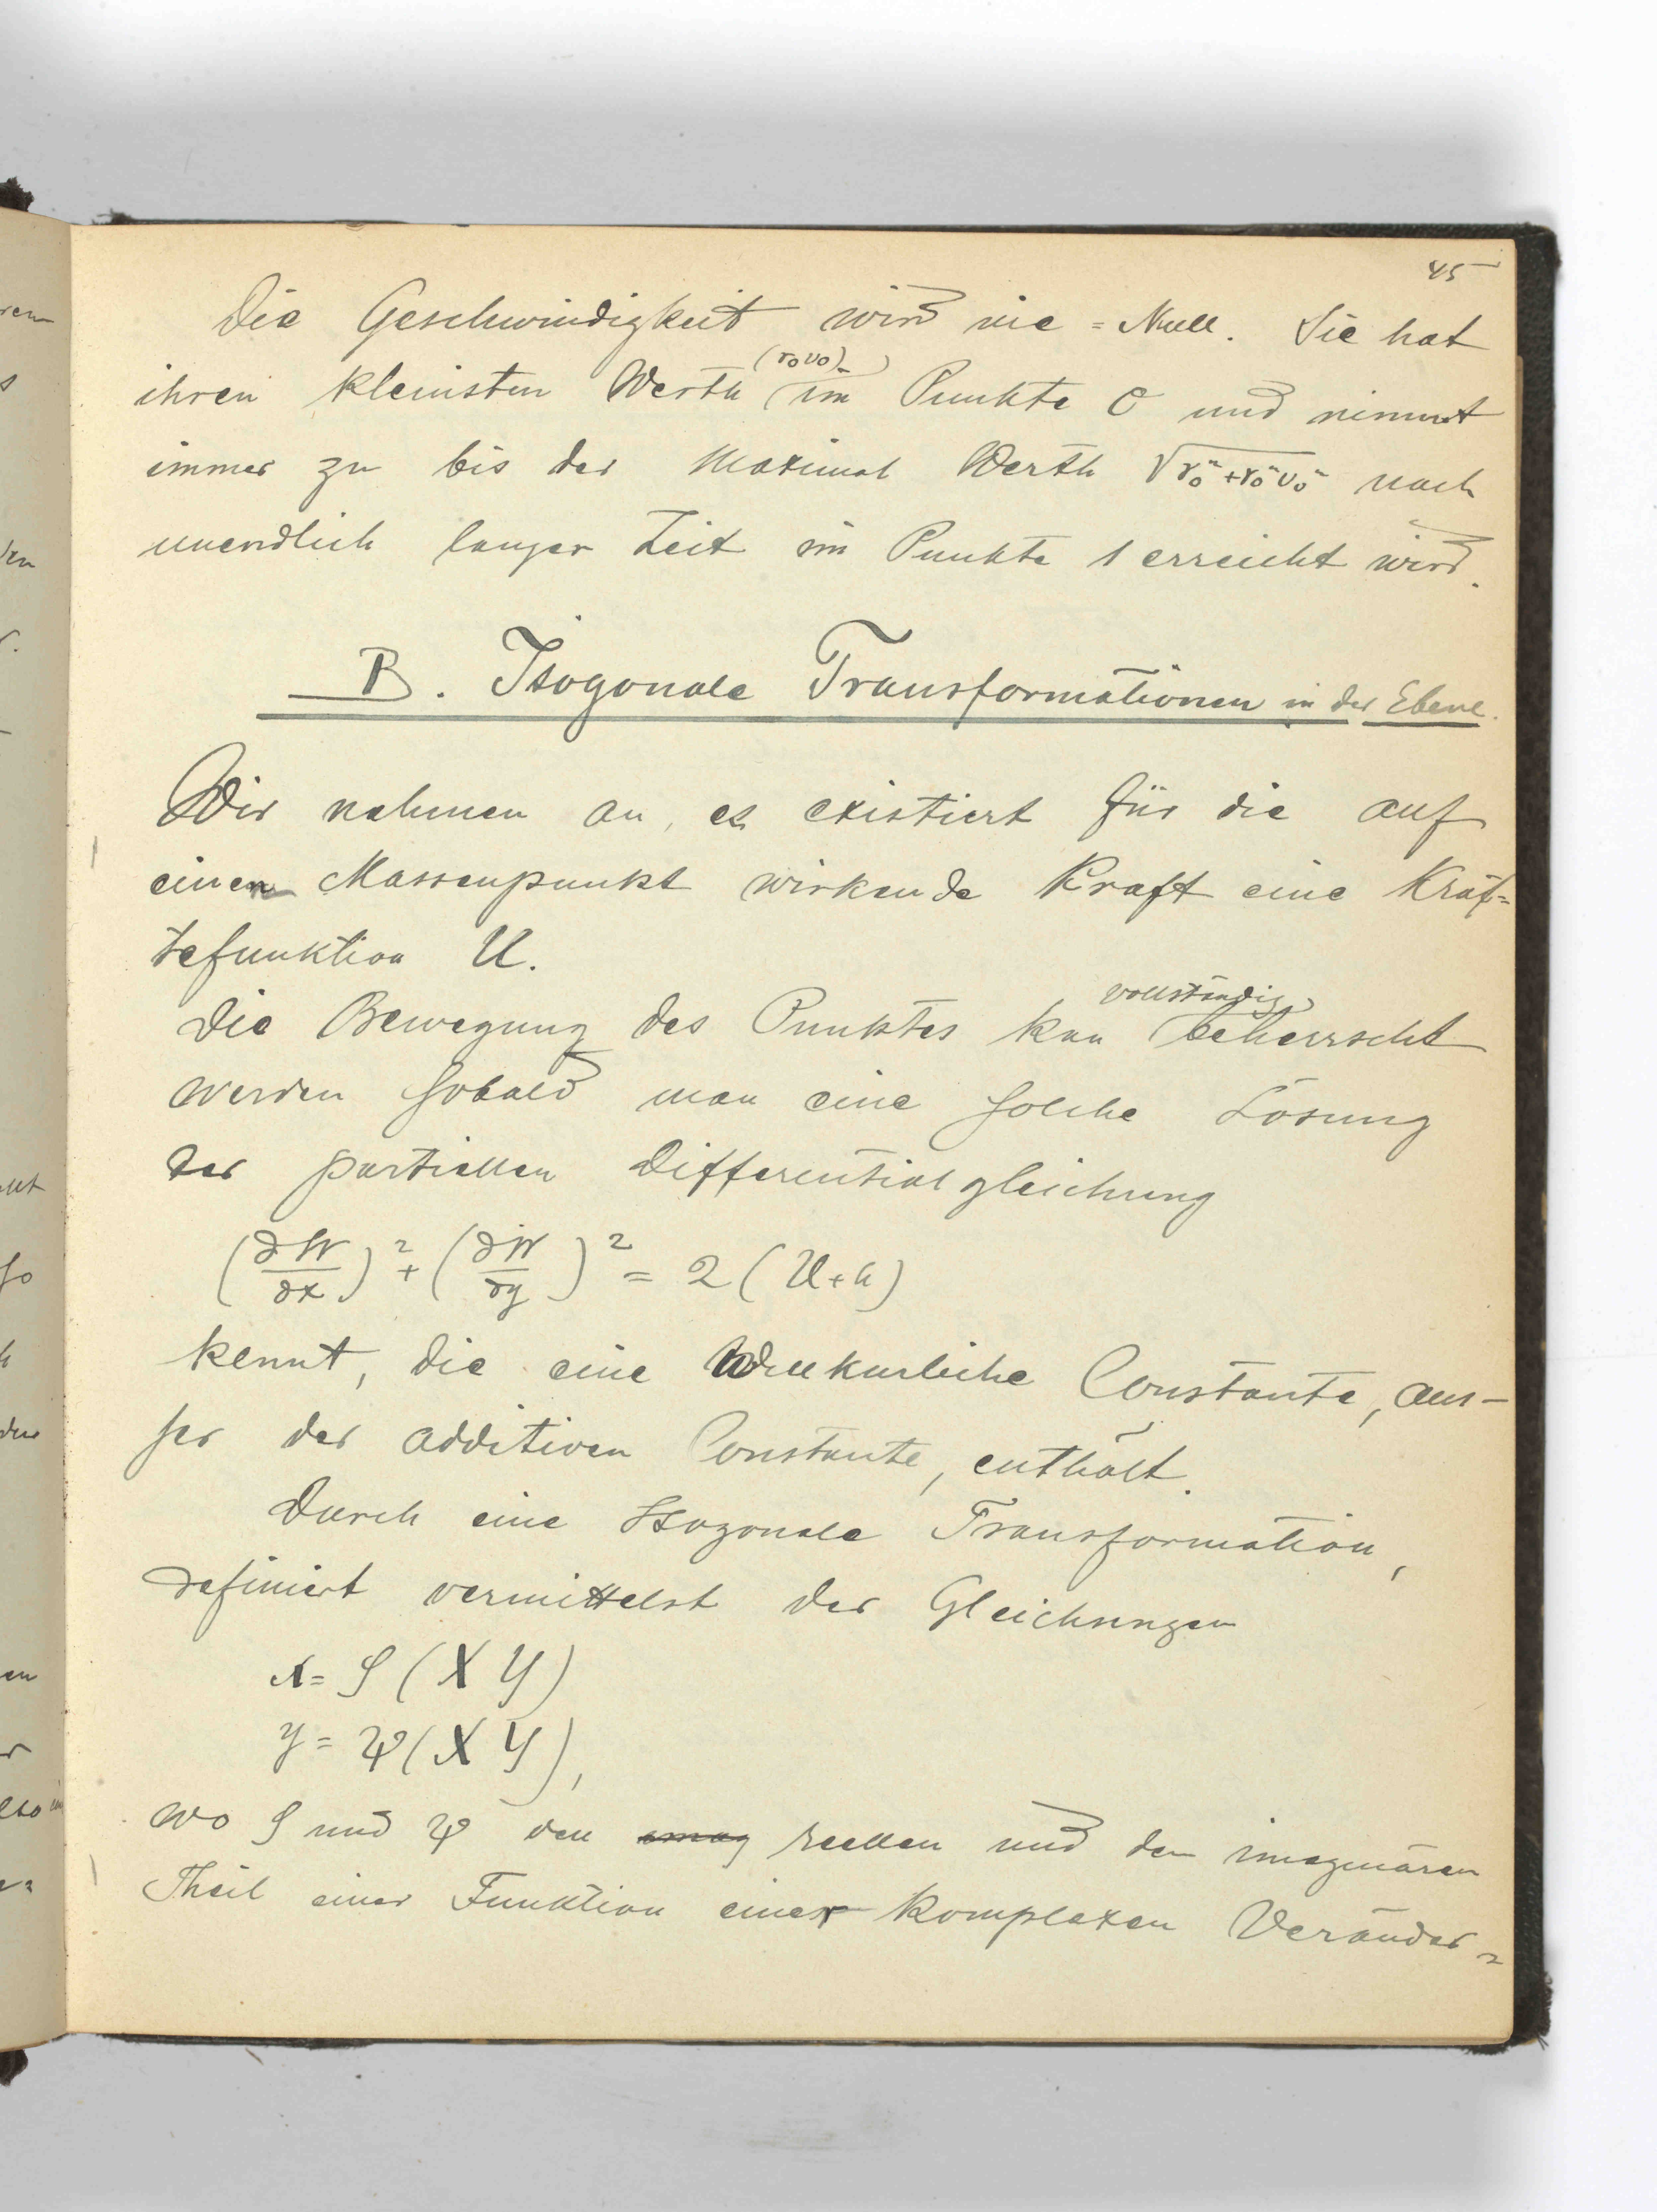 45
Die Geschwindigkeit wird nie = Null. Sie hat
(r₀v₀)
ihren kleinsten Werth im Punkte O und nimmt
immer zu bis der Maximal Werth √r₀¨+r₀¨v₀¨ nach
unendlich langer Zeit im Punkte 1 erreicht wird.
B. Isogonale Transformationen in der Ebene.
Wir nehmen an, es existiert für die auf
einen Massenpunkt wirkende Kraft eine Kräf=
tefunktion U.
vollständig
Die Bewegung des Punktes kan beherrscht
werden sobald man eine solche Lösung
der partiellen Differentialgleichung
(∂W/∂x)² + (∂W/∂y)² = 2(U+h)
kennt, die eine Willkurliche Constante, aus-
ser der additiven Constante, enthält.
Durch eine Isogonale Transformation,
definiert vermittelst der Gleichungen
x = φ(X Y)
y = ψ(X Y),
wo φ und ψ den imag reellen und den imaginären
Theil einer Funktion einer Komplexen Veränder=